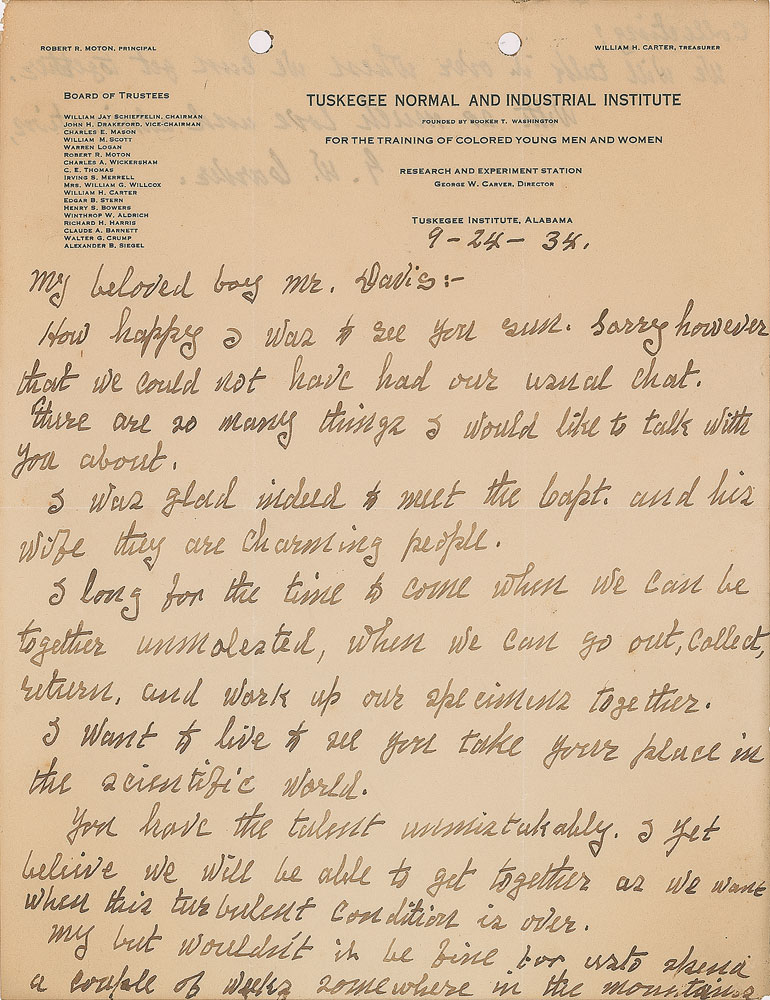 ROBERT R. MOTON, PRINCIPAL
WILLIAM H. CARTER, TREASURER
BOARD OF TRUSTEES
WILLIAM JAY SCHIEFFELIN, CHAIRMAN
JOHN H. DRAKEFORD, VICE-CHAIRMAN
CHARLES E. MASON
WILLIAM M. SCOTT
WARREN LOGAN
ROBERT R. MOTON
CHARLES A. WICKERSHAM
C. E. THOMAS
IRVING S. MERRELL
MRS. WILLIAM G. WILLCOX
WILLIAM H. CARTER
EDGAR B. STERN
HENRY S. BOWERS
WINTHROP W. ALDRICH
RICHARD H. HARRIS
CLAUDE A. BARNETT
WALTER G. CRUMP
ALEXANDER B. SIEGEL
TUSKEGEE NORMAL AND INDUSTRIAL INSTITUTE
FOUNDED BY BOOKER T. WASHINGTON
FOR THE TRAINING OF COLORED YOUNG MEN AND WOMEN
RESEARCH AND EXPERIMENT STATION
GEORGE W. CARVER, DIRECTOR
TUSKEGEE INSTITUTE, ALABAMA
9-24-34.
My beloved boy Mr. Davis:-
How happy I was to see you sun. Sorry however
that we could not have had our usual chat.
There are so many things I would like to talk with
you about.
I was glad indeed to meet the Capt. and his
wife they are charming people.
I long for the time to come when we can be
together unmolested, when we can go out, collect,
return, and work up our specimens together.
I want to live to see you take your place in
the scientific world.
You have the talent unmistakably. I yet
believe we will be able to get together as we want
when this turbulent condition is over.
My but wouldn't it be fine for us to spend
a couple of weeks somewhere in the mountains